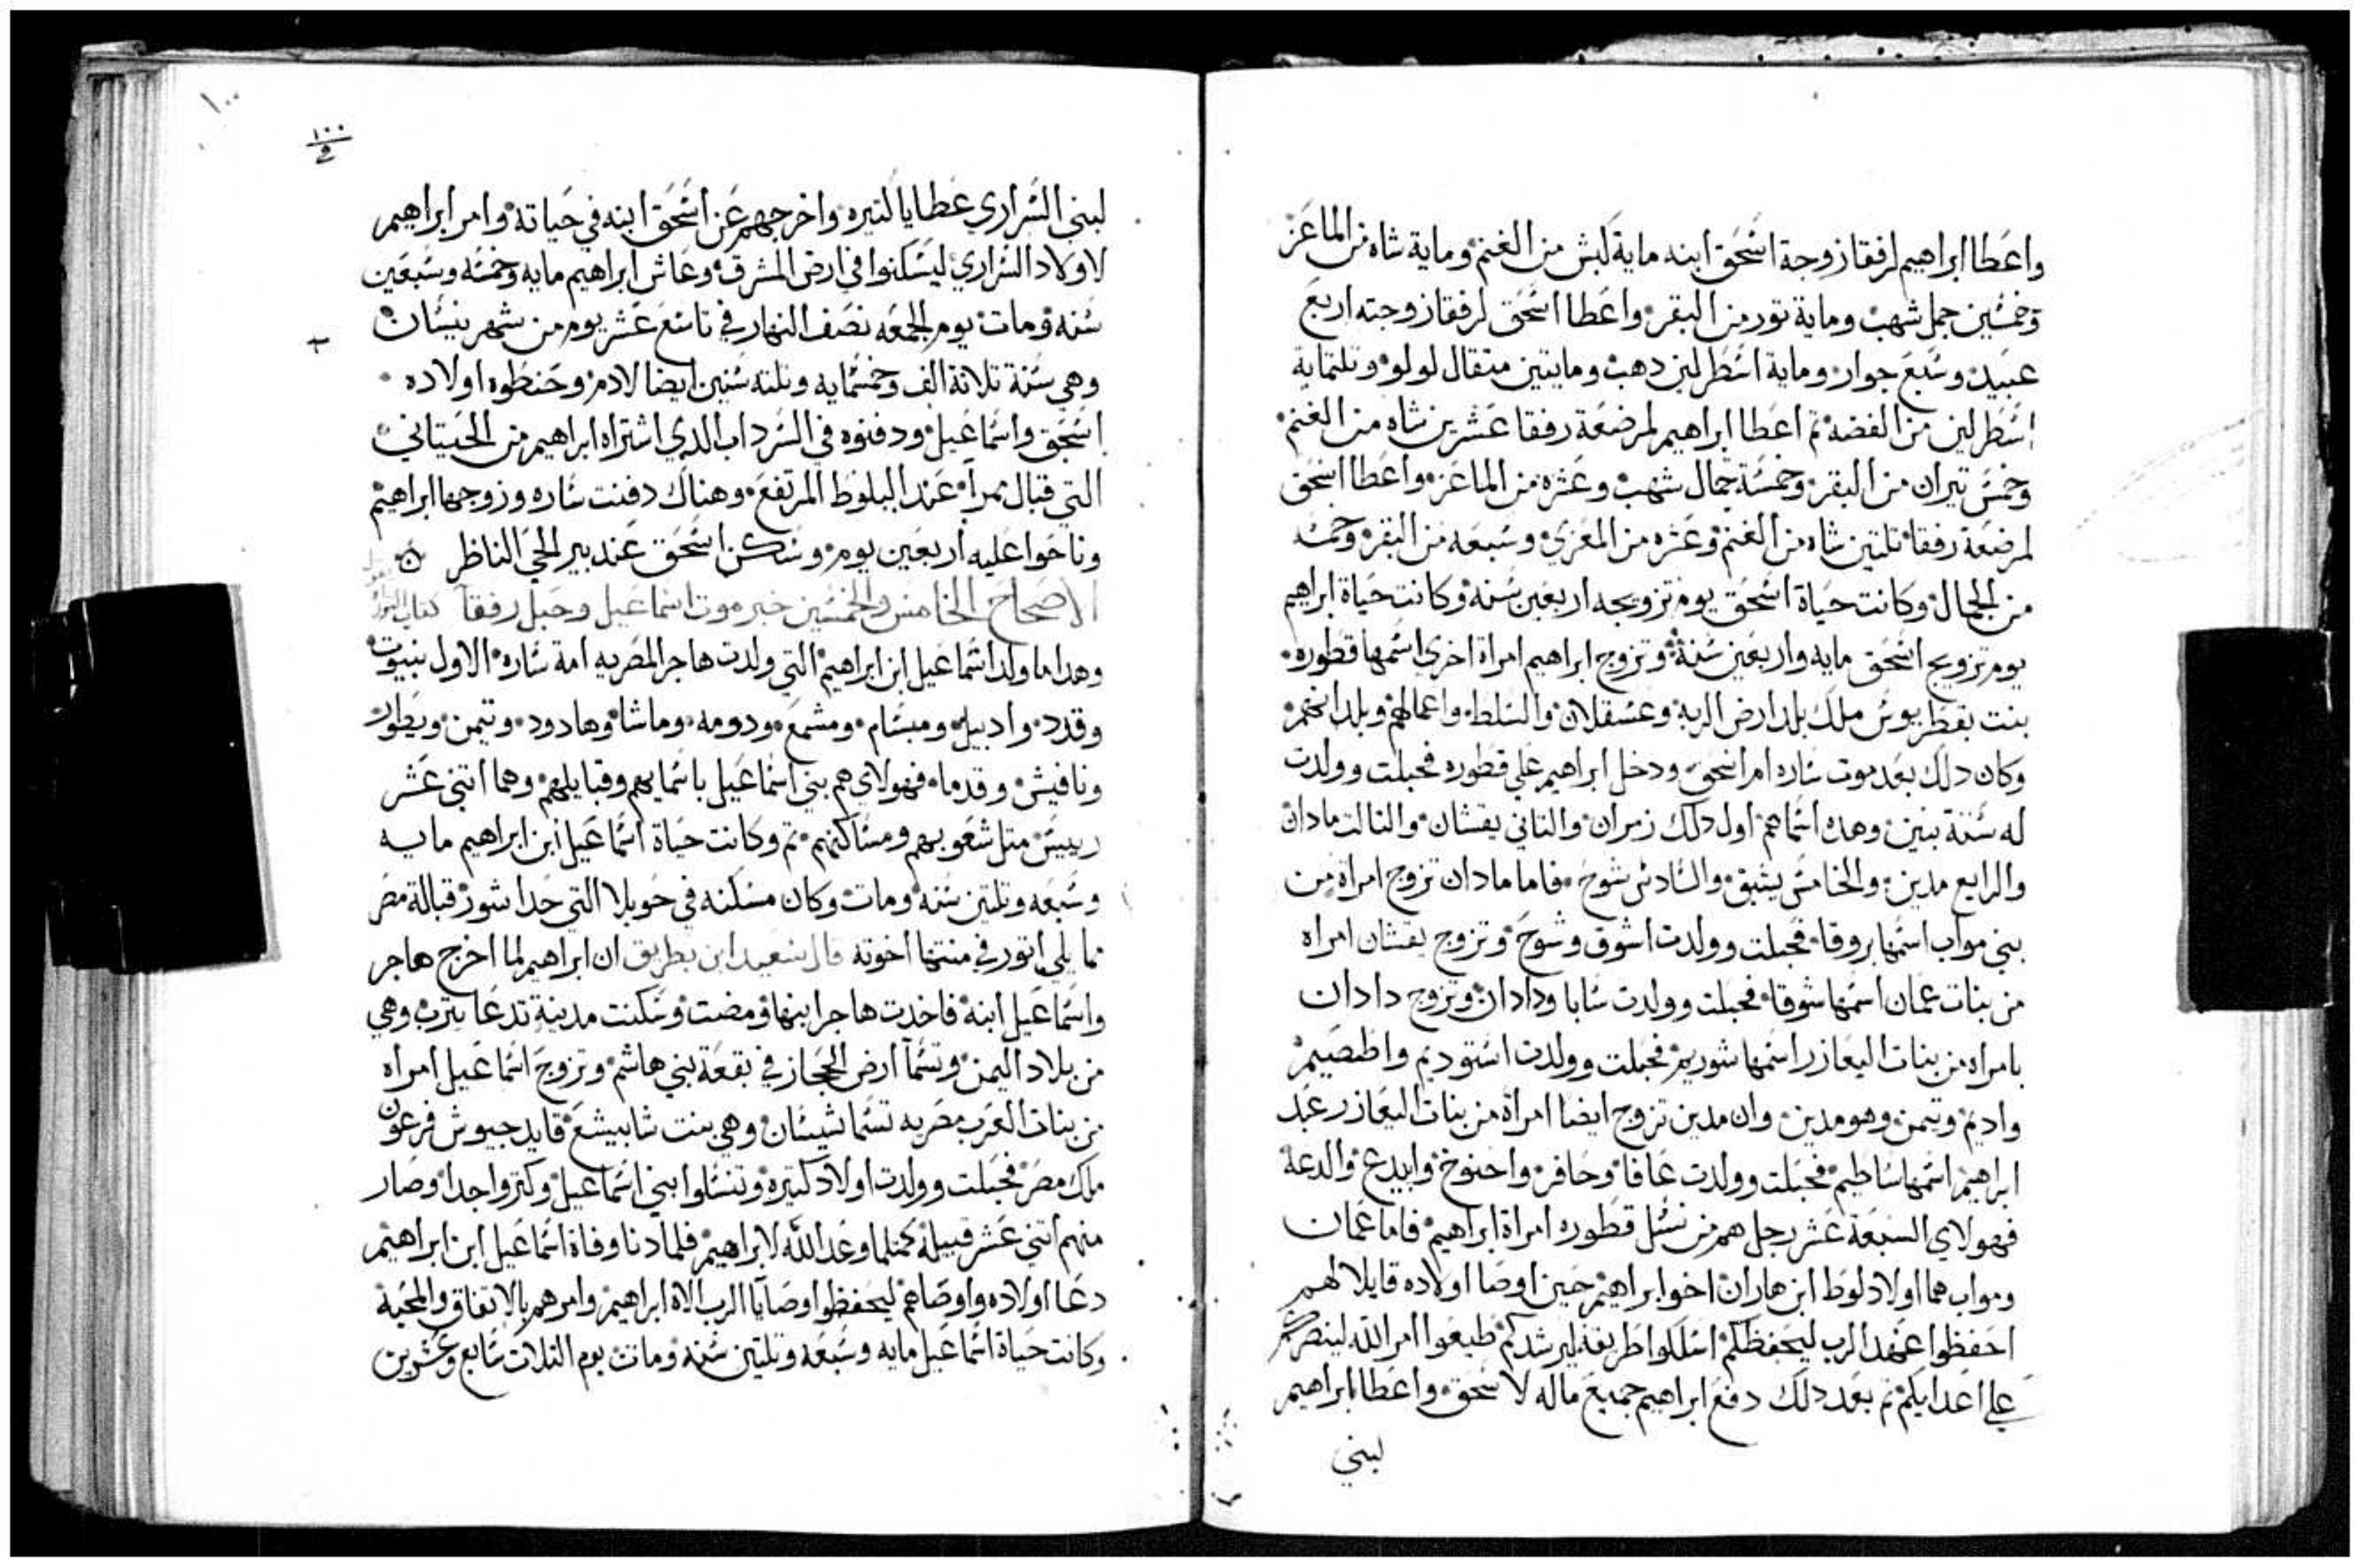 واعطا ابراهيم لرفقا زوجة اسحق ابنه ماية كبش من الغنم وماية شاه من الماعز
وخمسين جمل شهب وماية تور من البقر واعطا اسحق لرفقا زوجته اربع
عبيد وسبع جوار وماية اسطرلين دهب ومايتين متقال لولو وتلتماية
اسطرلين من الفضه تم اعطا ابراهيم لمرضعة رفقا عشرين شاه من الغنم
وخمس تيران من البقر وخمسة جمال شهب وعشره من الماعز واعطا اسحق
لمرضعة رفقا تلتين شاه من الغنم وعشره من المعزي وسبعه من البقر وخمسه
من الجمال وكانت حياة اسحق يوم تزويجه اربعين سنه وكانت حياة ابراهيم
يوم تزويج اسحق مايه واربعين سنة وتزوج ابراهيم امراة اخري اسمها قطوره
بنت بقطريوس ملك بلد ارض الربة وعسقلان والسلط واعمالهم وبلدانهم
وكان دلك بعد موت ساره ام اسحق ودخل ابراهيم علي قطوره فحبلت وولدت
له ستة بنين وهده اسماهم اول دلك زمران والتاني يقشان والتالت مادان
والرابع مدين والخامس يشبق والسادس شوح فاما مادان تزوج امراة من
بني مواب اسمها بروقا فحبلت وولدت اشوق وشوح وتزوج يقشان امراه
من بنات عمان اسمها شوقا فحبلت وولدت سابا ودادان وتزوج دادان
بامراه من بنات اليعازر اسمها شوريم فحبلت وولدت استوديم واطصيم
واديم وتيمن وهو مدين وان مدين تزوج ايضا امراة من بنات اليعازر عبد
ابراهيم اسمها ساطيم فحبلت وولدت عافا وحافر واحنوخ وابيدع والدعة
فهولاي السبعة عشر رجل هم من نسل قطوره امراة ابراهيم فاما عمان
ومواب هما اولاد لوط ابن هاران اخو ابراهيم حين اوصا اولاده قايلا لهم
احفظوا عهد الرب ليحفظكم اسلكوا طريقه ليرشدكم طيعوا امر الله لينصركم
علي اعدايكم تم بعد دلك دفع ابراهيم جميع ماله لاسحق واعطا ابراهيم
لبني
١٠٠
١٠٠
لبني السراري عطايا كتيره واخرجهم عن اسحق ابنه في حياته وامر ابراهيم
لاولاد السراري ليسكنوا في ارض المشرق وعاش ابراهيم مايه وخمسه وسبعين
سنه ومات يوم الجمعه نصف النهار في تاسع عشر يوم من شهر نيسان
وهي سنة تلاتة الف وخمسمايه وتلته سنين ايضا لادم وحنطوه اولاده
اسحق واسماعيل ودفنوه في السرداب الدي اشتراه ابراهيم من الحيتاني
التي قبال ممرا عند البلوط المرتفع وهناك دفنت ساره وزوجها ابراهيم
وناحوا عليه اربعين يوم وسكن اسحق عند بير الحي الناظر
الاصحاح الخامس والخمسين خبر موت اسماعيل وحبل رفقا
وهدا ما ولد اسماعيل ابن ابراهيم التي ولدت هاجر المصريه امة ساره الاول نبيوت
وقدد وادبيل ومبسام ومشمع ودومه وماشا وهادود وتيمن ويطور
ونافيش وقدما فهولاي هم بني اسماعيل باسمايهم وقبايلهم وهما اتني عشر
رييس متل شعوبهم ومساكنهم تم وكانت حياة اسماعيل ابن ابراهيم مايه
وسبعه وتلتين سنه ومات وكان مسكنه في حويلا التي حدا شور قبالة مصر
مما يلي اتور في منتها اخوته قال سعيد ابن بطريق ان ابراهيم لما اخرج هاجر
واسماعيل ابنه فاخدت هاجر ابنها ومضت وسكنت مدينة تدعا يترب وهي
من بلاد اليمن وتسما ارض الحجاز في بقعة بني هاشم وتزوج اسماعيل امراه
من بنات العرب مصريه تسما شيسان وهي بنت شابيشع قايد جيوش فرعون
ملك مصر فحبلت وولدت اولاد كتيره وتنسلوا بني اسماعيل وكتروا جدا وصار
منهم اتني عشر قبيلة كمتلما وعد الله لابراهيم فلما دنا وفاة اسماعيل ابن ابراهيم
دعا اولاده واوصاهم ليحفظوا وصايا الرب الاه ابراهيم وامرهم بالاتفاق والمحبة
وكانت حياة اسماعيل مايه وسبعه وتلتين سنه ومات يوم التلات سابع وعشرين